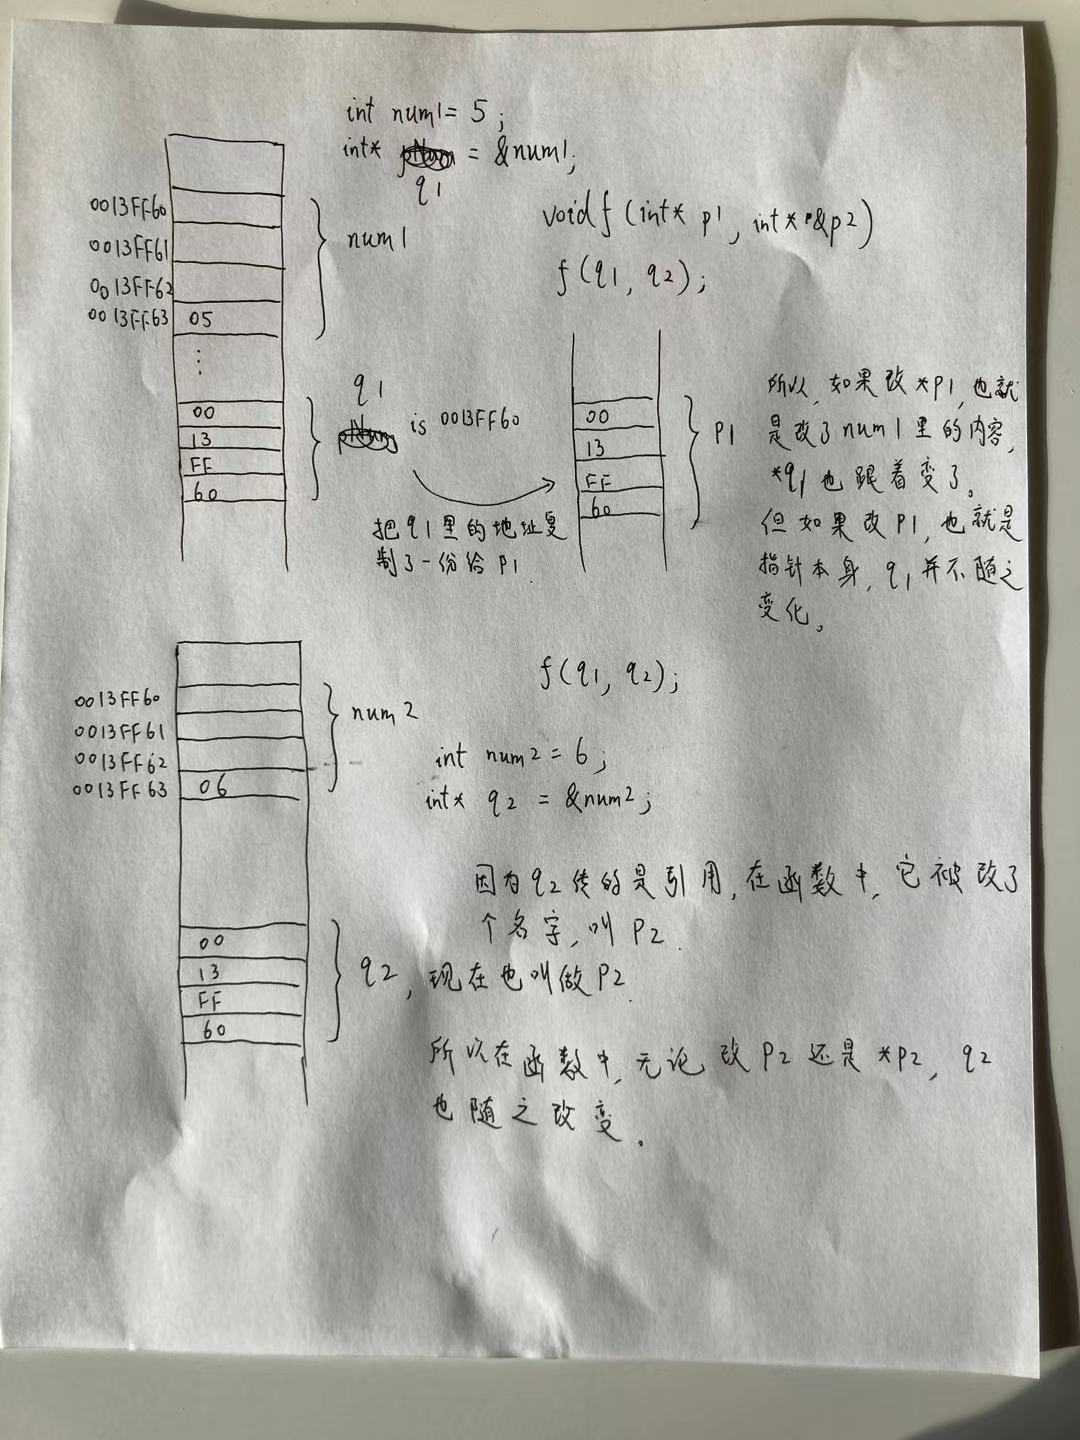 int num1 = 5;
int* q1 = &num1;
0013FF60
0013FF61
0013FF62
0013FF63 05
num1
void f(int* p1, int* &p2)
f(q1, q2);
q1
00
13
FF
60
is 0013FF60
把q1里的地址复
制了一份给P1
00
13
FF
60
P1
所以,如果改*P1,也就
是改了num1里的内容,
*q1也跟着变了。
但如果改P1,也就是
指针本身,q1并不随之
变化。
f(q1, q2);
0013FF60
0013FF61
0013FF62
0013FF63 06
num2
int num2 = 6;
int* q2 = &num2;
因为q2传的是引用,在函数中,它被改了
个名字,叫P2.
00
13
FF
60
q2,现在也叫做P2.
所以在函数中,无论改P2还是*P2,q2
也随之改变。